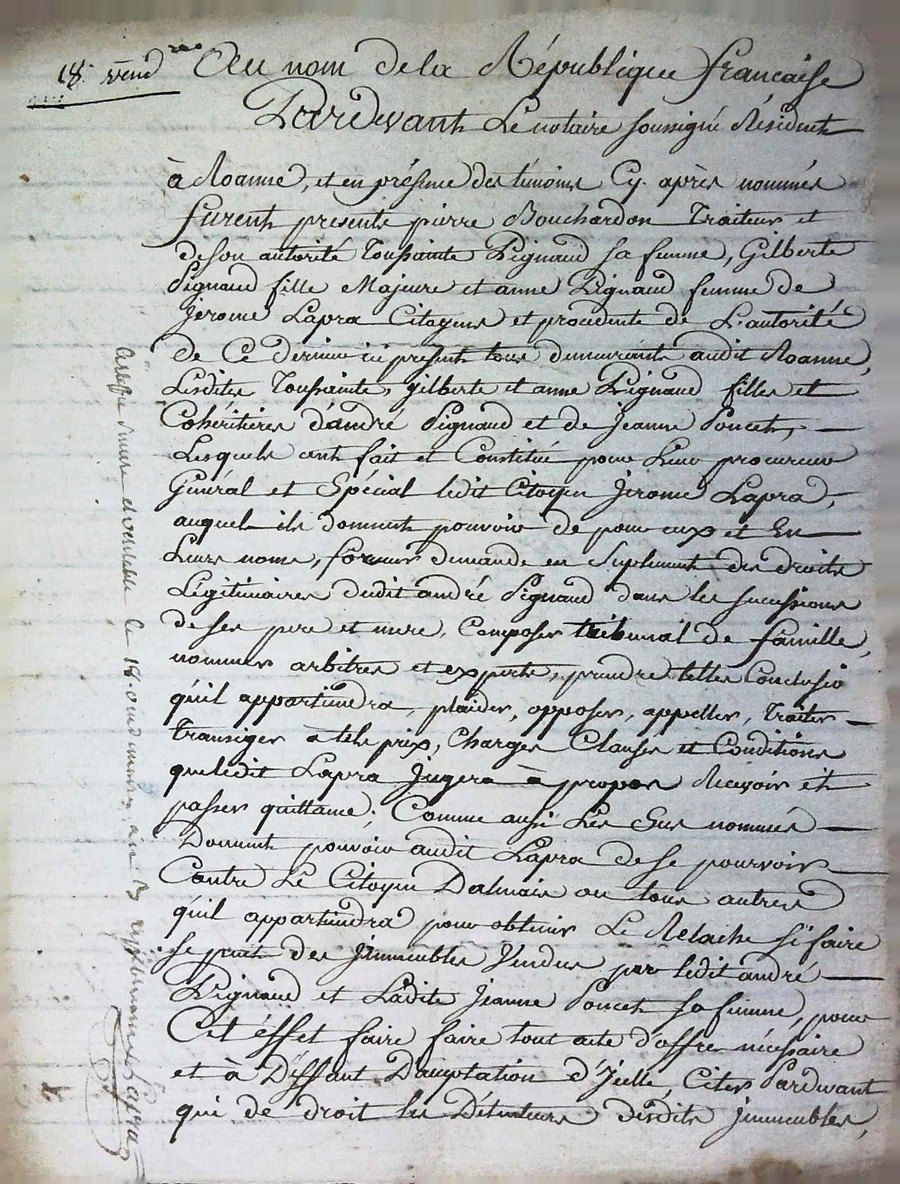 18 vend.re
Au nom de la République française
Pardevant Le notaire soussigné Résident
à Roanne, et en présence des témoins Cy. après nommés
furent presents pierre Bouchardon Traiteur et
de son autorité Toussainte Pignaud sa femme, Gilberte
Pignaud fille Majeure et anne Pignaud femme de
Jerome Lapra Citoyens et procedente de L'autorité
de Ce dernier ici présent tous demeurants audit Roanne,
Lesdites Toussainte, gilberte et anne Pignaud filles et
Cohéritieres d'andré Pignaud et de Jeanne Poncet,
Lesquels ont fait et Constitué pour Leur procureur
Général et Spécial ledit Citoyen Jerome Lapra,
auquel ils donnent pouvoir de pour eux et En
Leurs noms, former demande en Suplement des droits
Légitimaires dudit andré Pignaud dans les sucessions
de ses pere et mere, Composer tribunal de famille,
nommer arbitres et experts, prendre telles Conclusio
qu'il appartiendra, plaider, opposer, appeller, Traiter
Transiger à tels prix, Charges Clauses et Conditions
que ledit Lapra Jugera à propos Recevoir et
passer quittance. Comme aussi Les Sus nommés
Donnent pouvoir audit Lapra de se pourvoir
Contre Le Citoyen Dalmais ou tous autres
qu'il appartiendra pour obtenir Le Relache si faire
se peut des Jmmeubles Vendus par ledit andré
Pignaud et Ladite Jeanne Poncet sa femme, pour
Cet éffet faire faire tout acte d'offre nécessaire
et à Déffaut D'aceptation d'Jcelle, Citer Pardevant
qui de droit les Détenteurs desdits jmmeubles,
et veritable le 18 Lapra